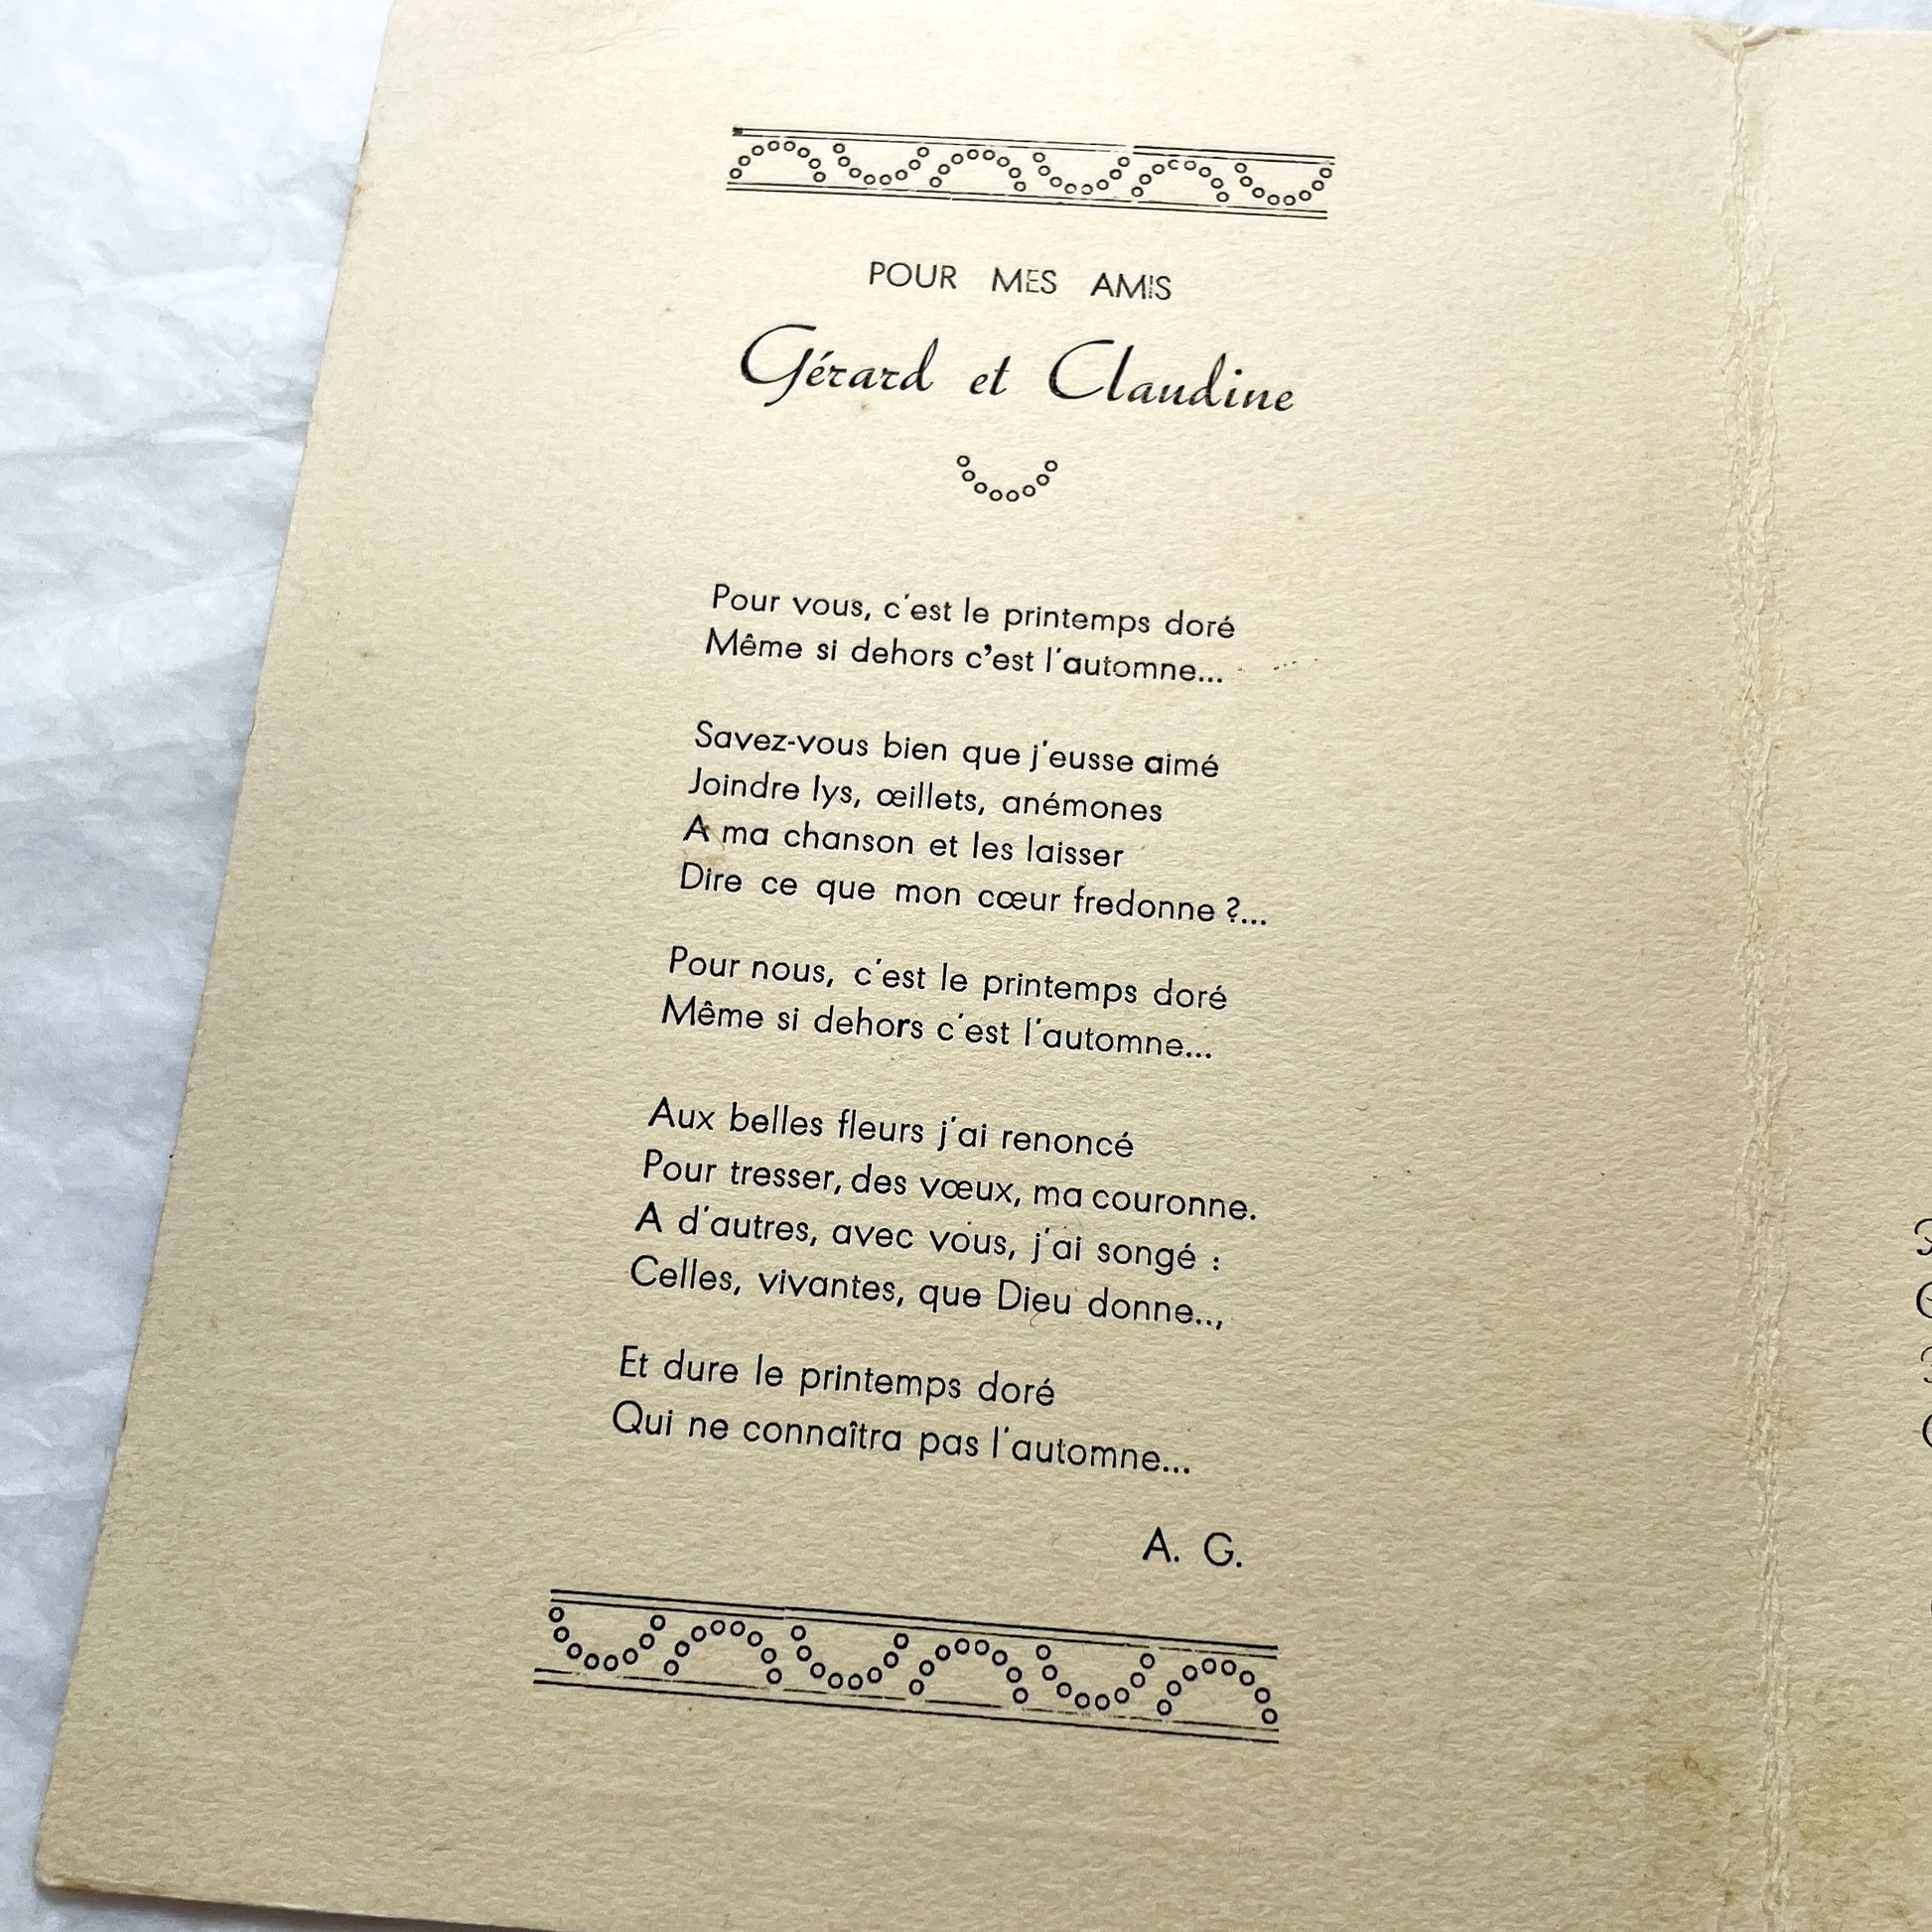 POUR MES AMIS
Gérard et Claudine
Pour vous, c'est le printemps doré
Même si dehors c'est l'automne...
Savez-vous bien que j'eusse aimé
Joindre lys, œillets, anémones
A ma chanson et les laisser
Dire ce que mon cœur fredonne ?...
Pour nous, c'est le printemps doré
Même si dehors c'est l'automne...
Aux belles fleurs j'ai renoncé
Pour tresser, des vœux, ma couronne.
A d'autres, avec vous, j'ai songé :
Celles, vivantes, que Dieu donne..,
Et dure le printemps doré
Qui ne connaîtra pas l'automne...
A. G.